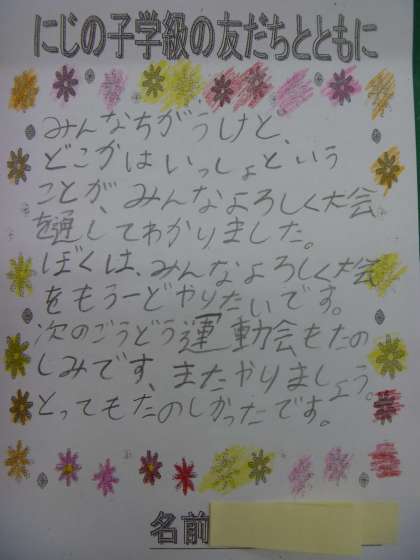 にじの子学級の友だちとともに
みんなちがうけど、
どこかはいっしょという
ことが、みんなよろしく大会
を通してわかりました。
ぼくは、みんなよろしく大会
をもう一どやりたいです。
次のごうどう運動会もたの
しみです、またやりましょう。
とってもたのしかったです。
名前